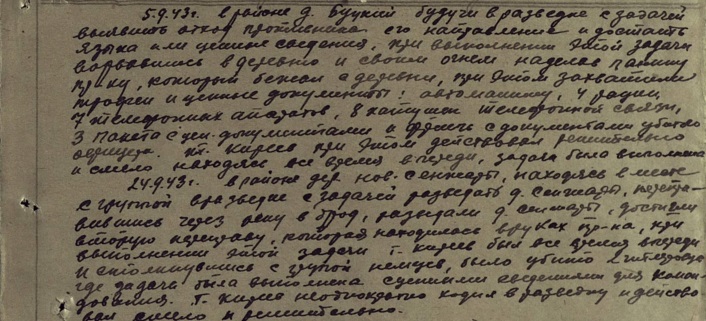 5.9.43г. в районе д. Буцкий будучи в разведке с задачей
выявить отход противника его направление и достать
языка или ценные сведения, при выполнении этой задачи
ворвавшись в деревню и своим огнем наделав панику
пр-ку, который бежал с деревни, при этом захватили
трофеи и ценные документы: автомашину, 4 рации,
7 телефонных аппаратов, 8 катушек телефонной связи,
3 пакета с цен. документами и с документами убитого
офицера. Киреев при этом действовал решительно
и смело находясь все время впереди, задача была выполнена
24.9.43г. в районе дер. нов. Сенжары, находясь вместе
с группой в разведке с задачей разведать д. Сенжары,
через реку в брод, разведали д. Сенжары, достигли
вторую, которая находилась в руках пр-ка, при
выполнении этой задачи т. Киреев был все время впереди
и столкнувшись с группой немцев, было убито 2 гитлеровца
где задача была выполнена с ценными сведениями для коман-
дования. т. Киреев неоднократно ходил в разведку и действо-
вал смело и решительно.